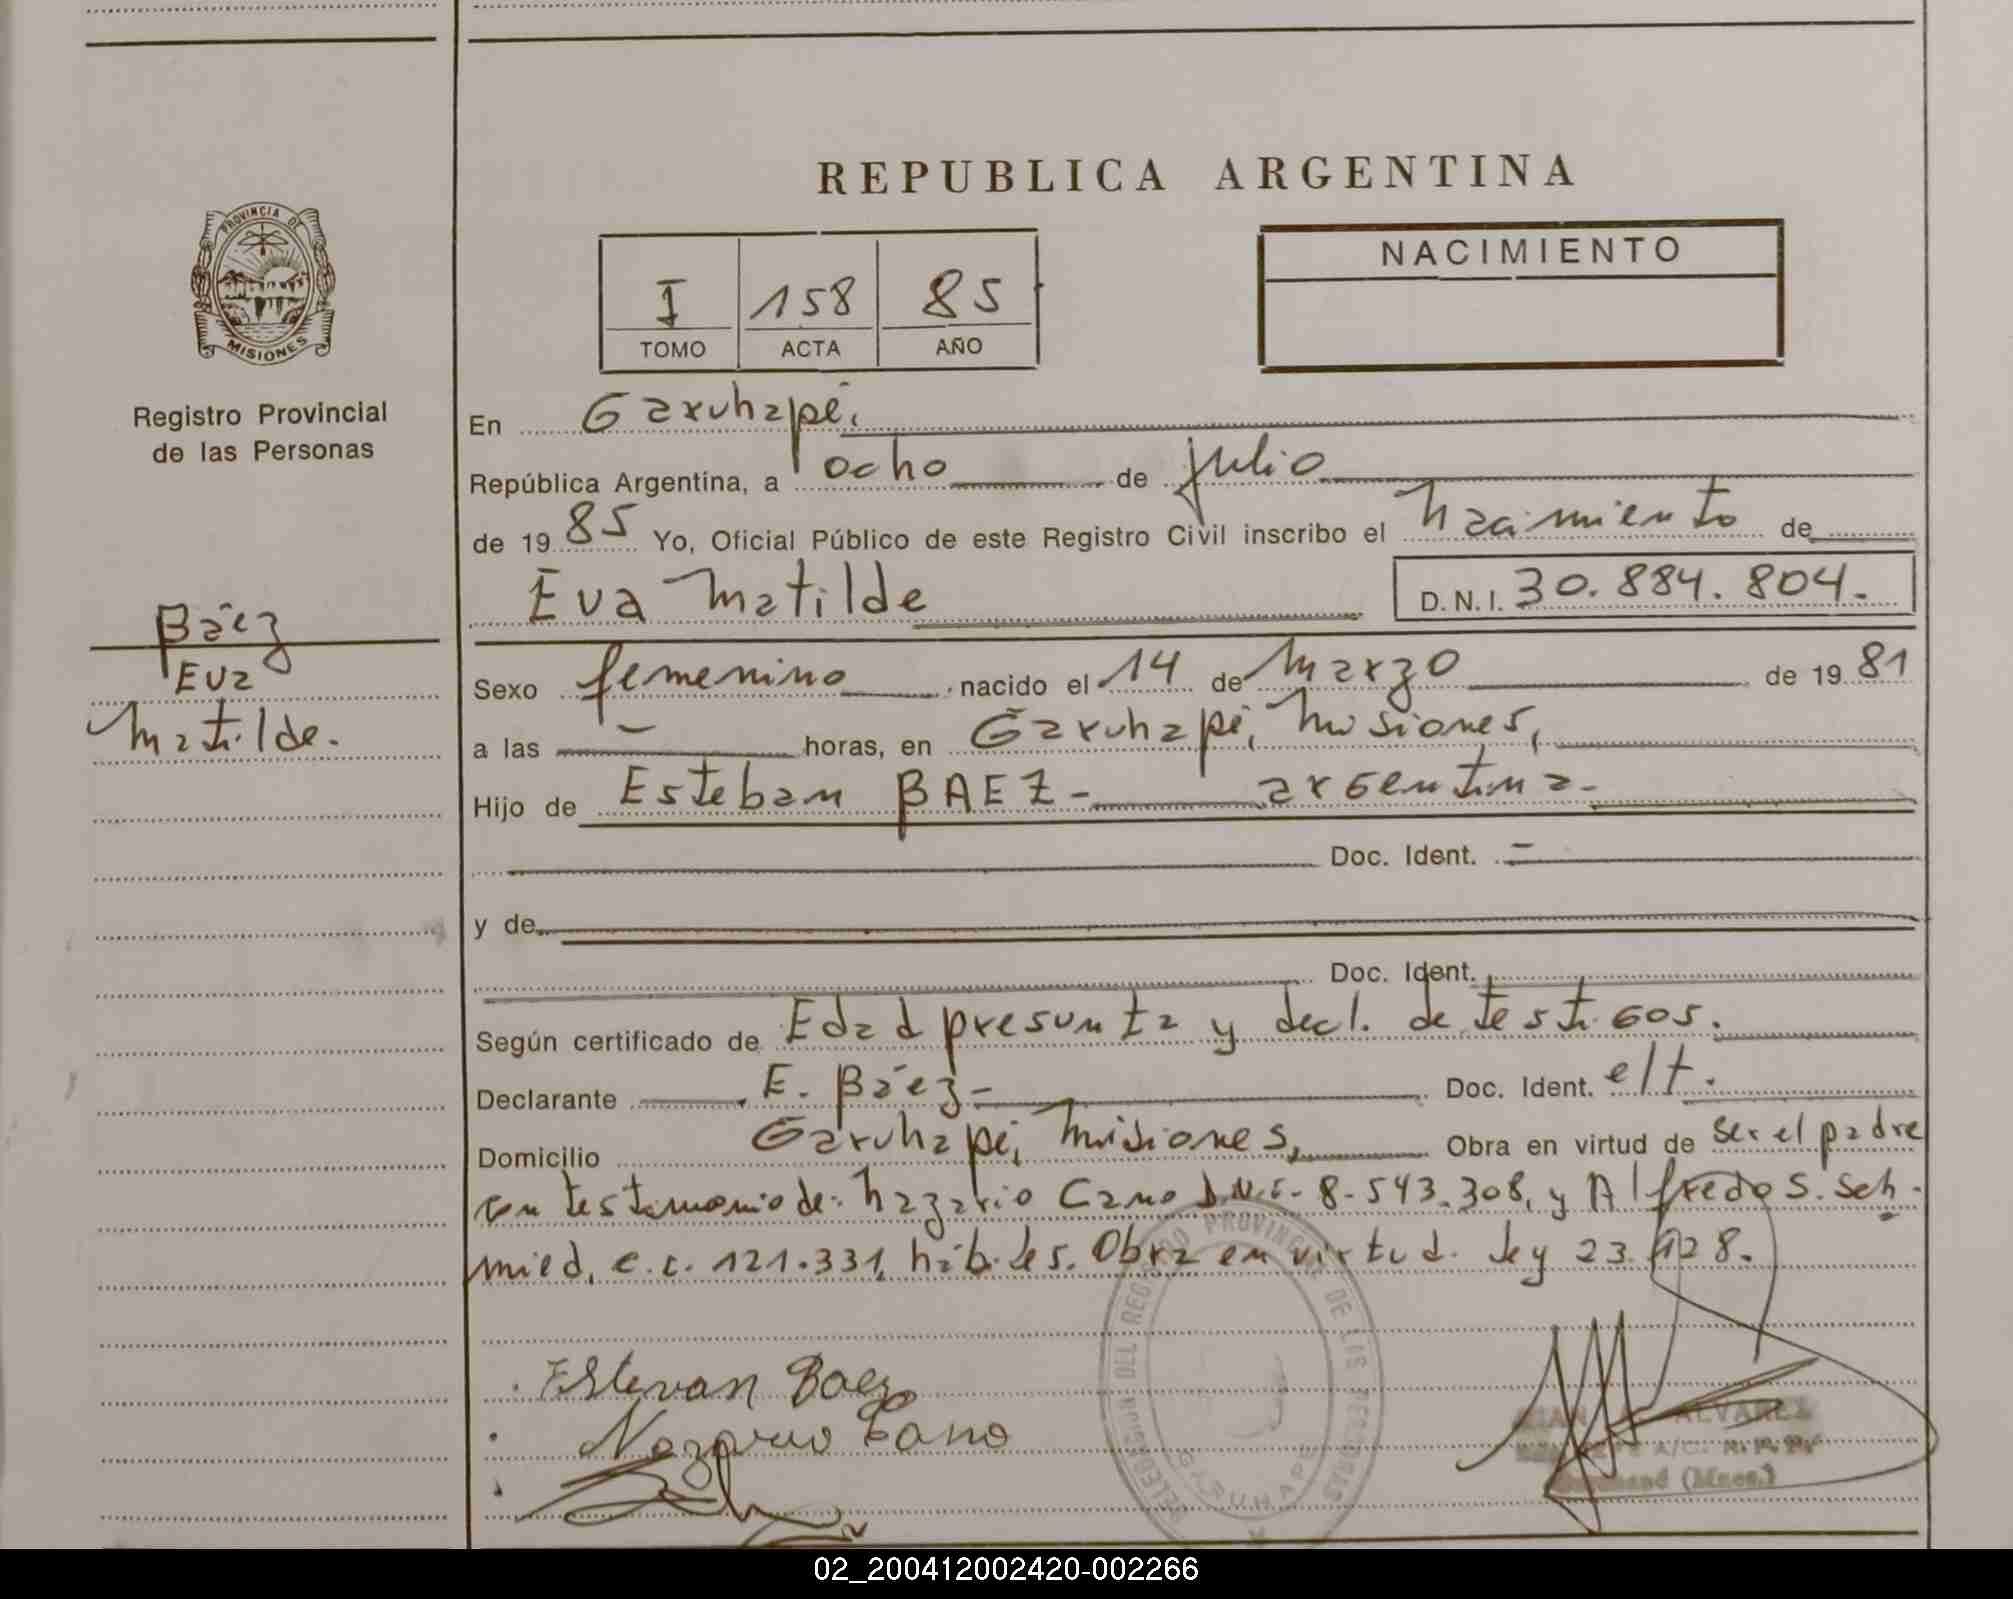 REPUBLICA ARGENTINA
PROVINCIA DE
MISIONES
Registro Provincial
de las Personas
I 158 85
TOMO ACTA AÑO
NACIMIENTO
En Garuhapé,
República Argentina, a ocho de julio
de 1985 Yo, Oficial Público de este Registro Civil inscribo el nacimiento de
Eva Matilde D.N.I. 30.884.804.
Báez
Eva
Matilde.
Sexo femenino nacido el 14 de Marzo de 1981
a las — horas, en Garuhapé, Misiones,
Hijo de Esteban BAEZ- argentina-
Doc. Ident. -
y de
Doc. Ident.
Según certificado de Edad presunta y decl. de testigos.
Declarante E. Báez- Doc. Ident. elt.
Domicilio Garuhapé, Misiones, Obra en virtud de ser el padre
con testimonio de: Nazario Cano D.N.I- 8-543.308, y Alfredo S. Sch-
mied, c.c. 121.331, hábiles. Obra en virtud. Ley 23.128.
Estevan Baez
Nazario Cano
DELEGACION DEL REGISTRO PROVINCIAL DE LAS PERSONAS
GARUHAPE
ALVAREZ
A/C. R. P. P.
(Mnes.)
02_200412002420-002266